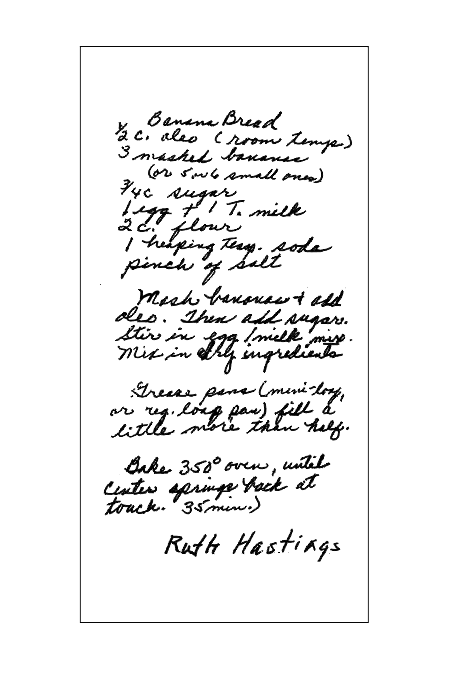 Banana Bread
1/2 c. oleo (room temp)
3 mashed bananas
(or 5 or 6 small ones)
3/4 c sugar
1 egg + 1 T. milk
2 c. flour
1 heaping teasp. soda
pinch of salt
Mash bananas + add
oleo. Then add sugar.
Stir in egg/milk mix.
Mix in dry ingredients
Grease pans (mini-loaf,
or reg. loaf pan) fill a
little more than half.
Bake 350° oven, until
center springs back at
touch. 35 min.)
Ruth Hastings